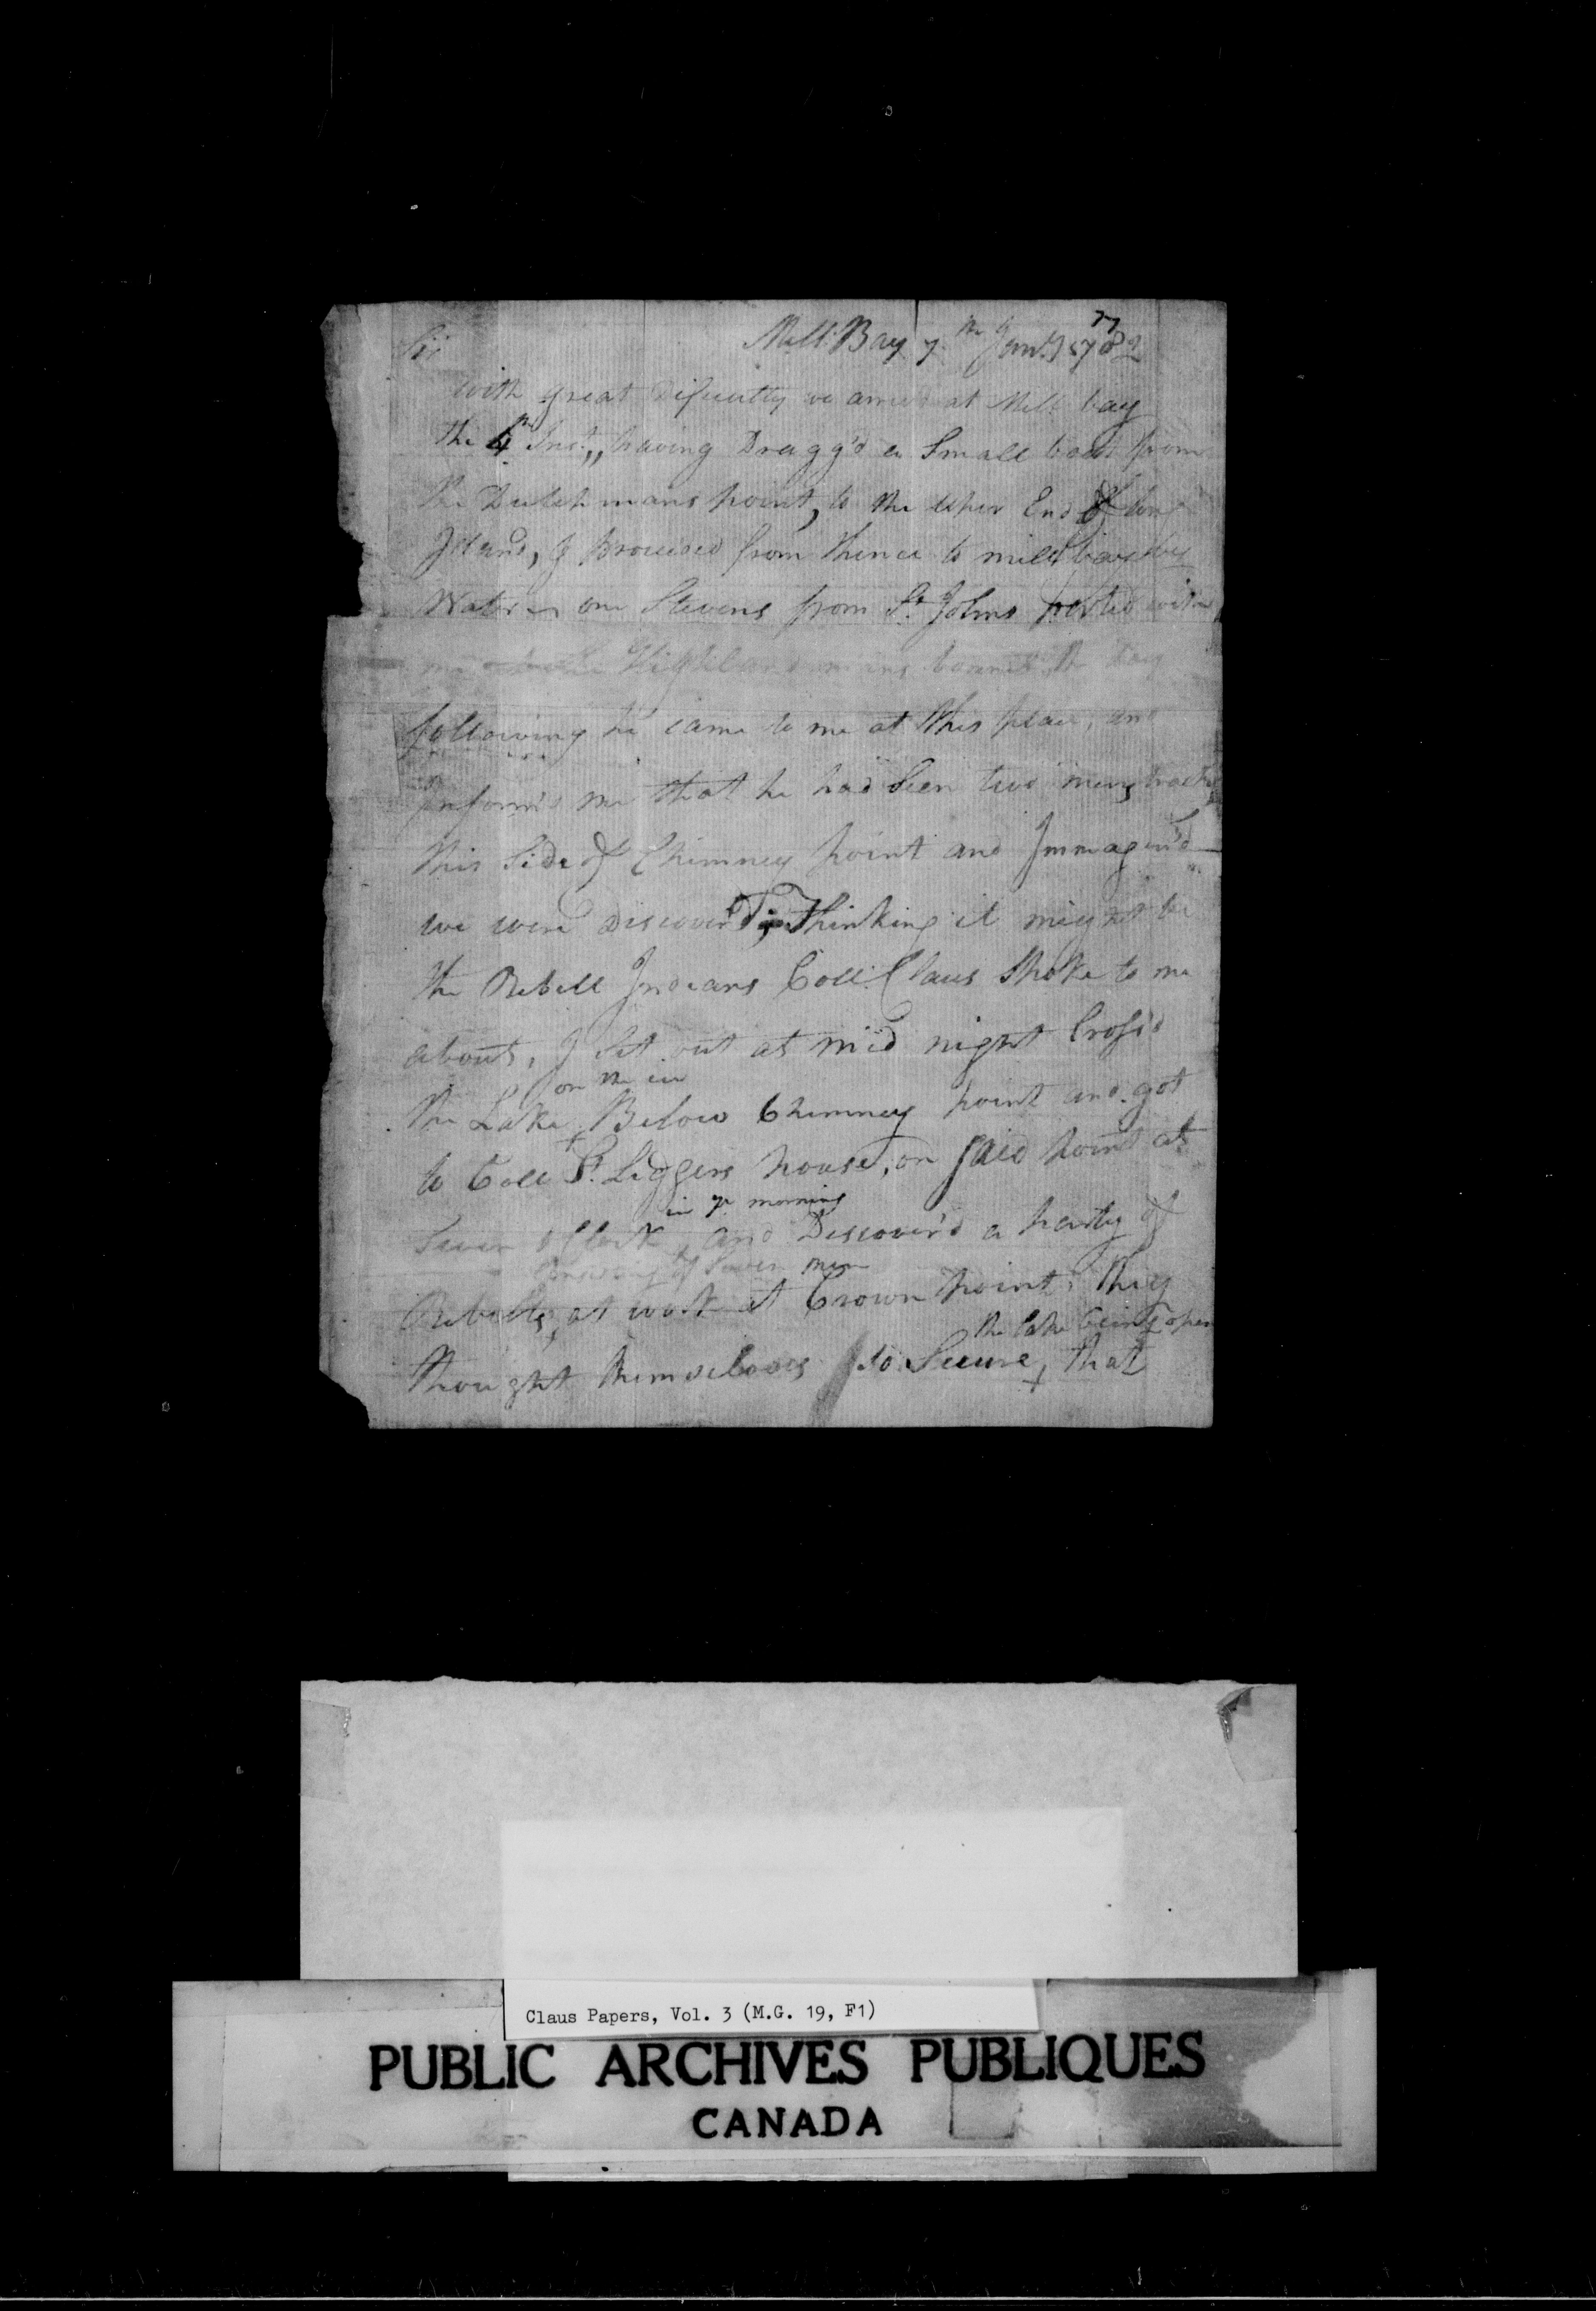 77
Sir Mill Bay 7th Janry 1782
with great Dificulty we arrived at Mill bay
the 4th Inst,, having Dragg'd a Small boat from
the Dutchmans point, to the uper End of long
Island, I proceeded from thence to mill bay by
Water one Stevens from St Johns parted with
me Highlandmans bonnet, the day
following he came to me at this place, and
Inform'd me that he had Seen two mens tracks
this Side of Chimney point and Immagen'd
we were Discover'd; Thinking it might be
the Rebell Indians Coll. Claus Spoke to me
about, I Set out at mid night Cross'd
on the ice
the Lake Below Chimney point and got
to Coll St. Leggers house, on Said point at
in ye morning
Seven oClock and Discover'd a party of
Consisting of Seven men
Rebells, at work at Crown point, they
the lake being open
thought themselves So Secure, that
Claus Papers, Vol. 3 (M.G. 19, F1)
PUBLIC ARCHIVES PUBLIQUES
CANADA